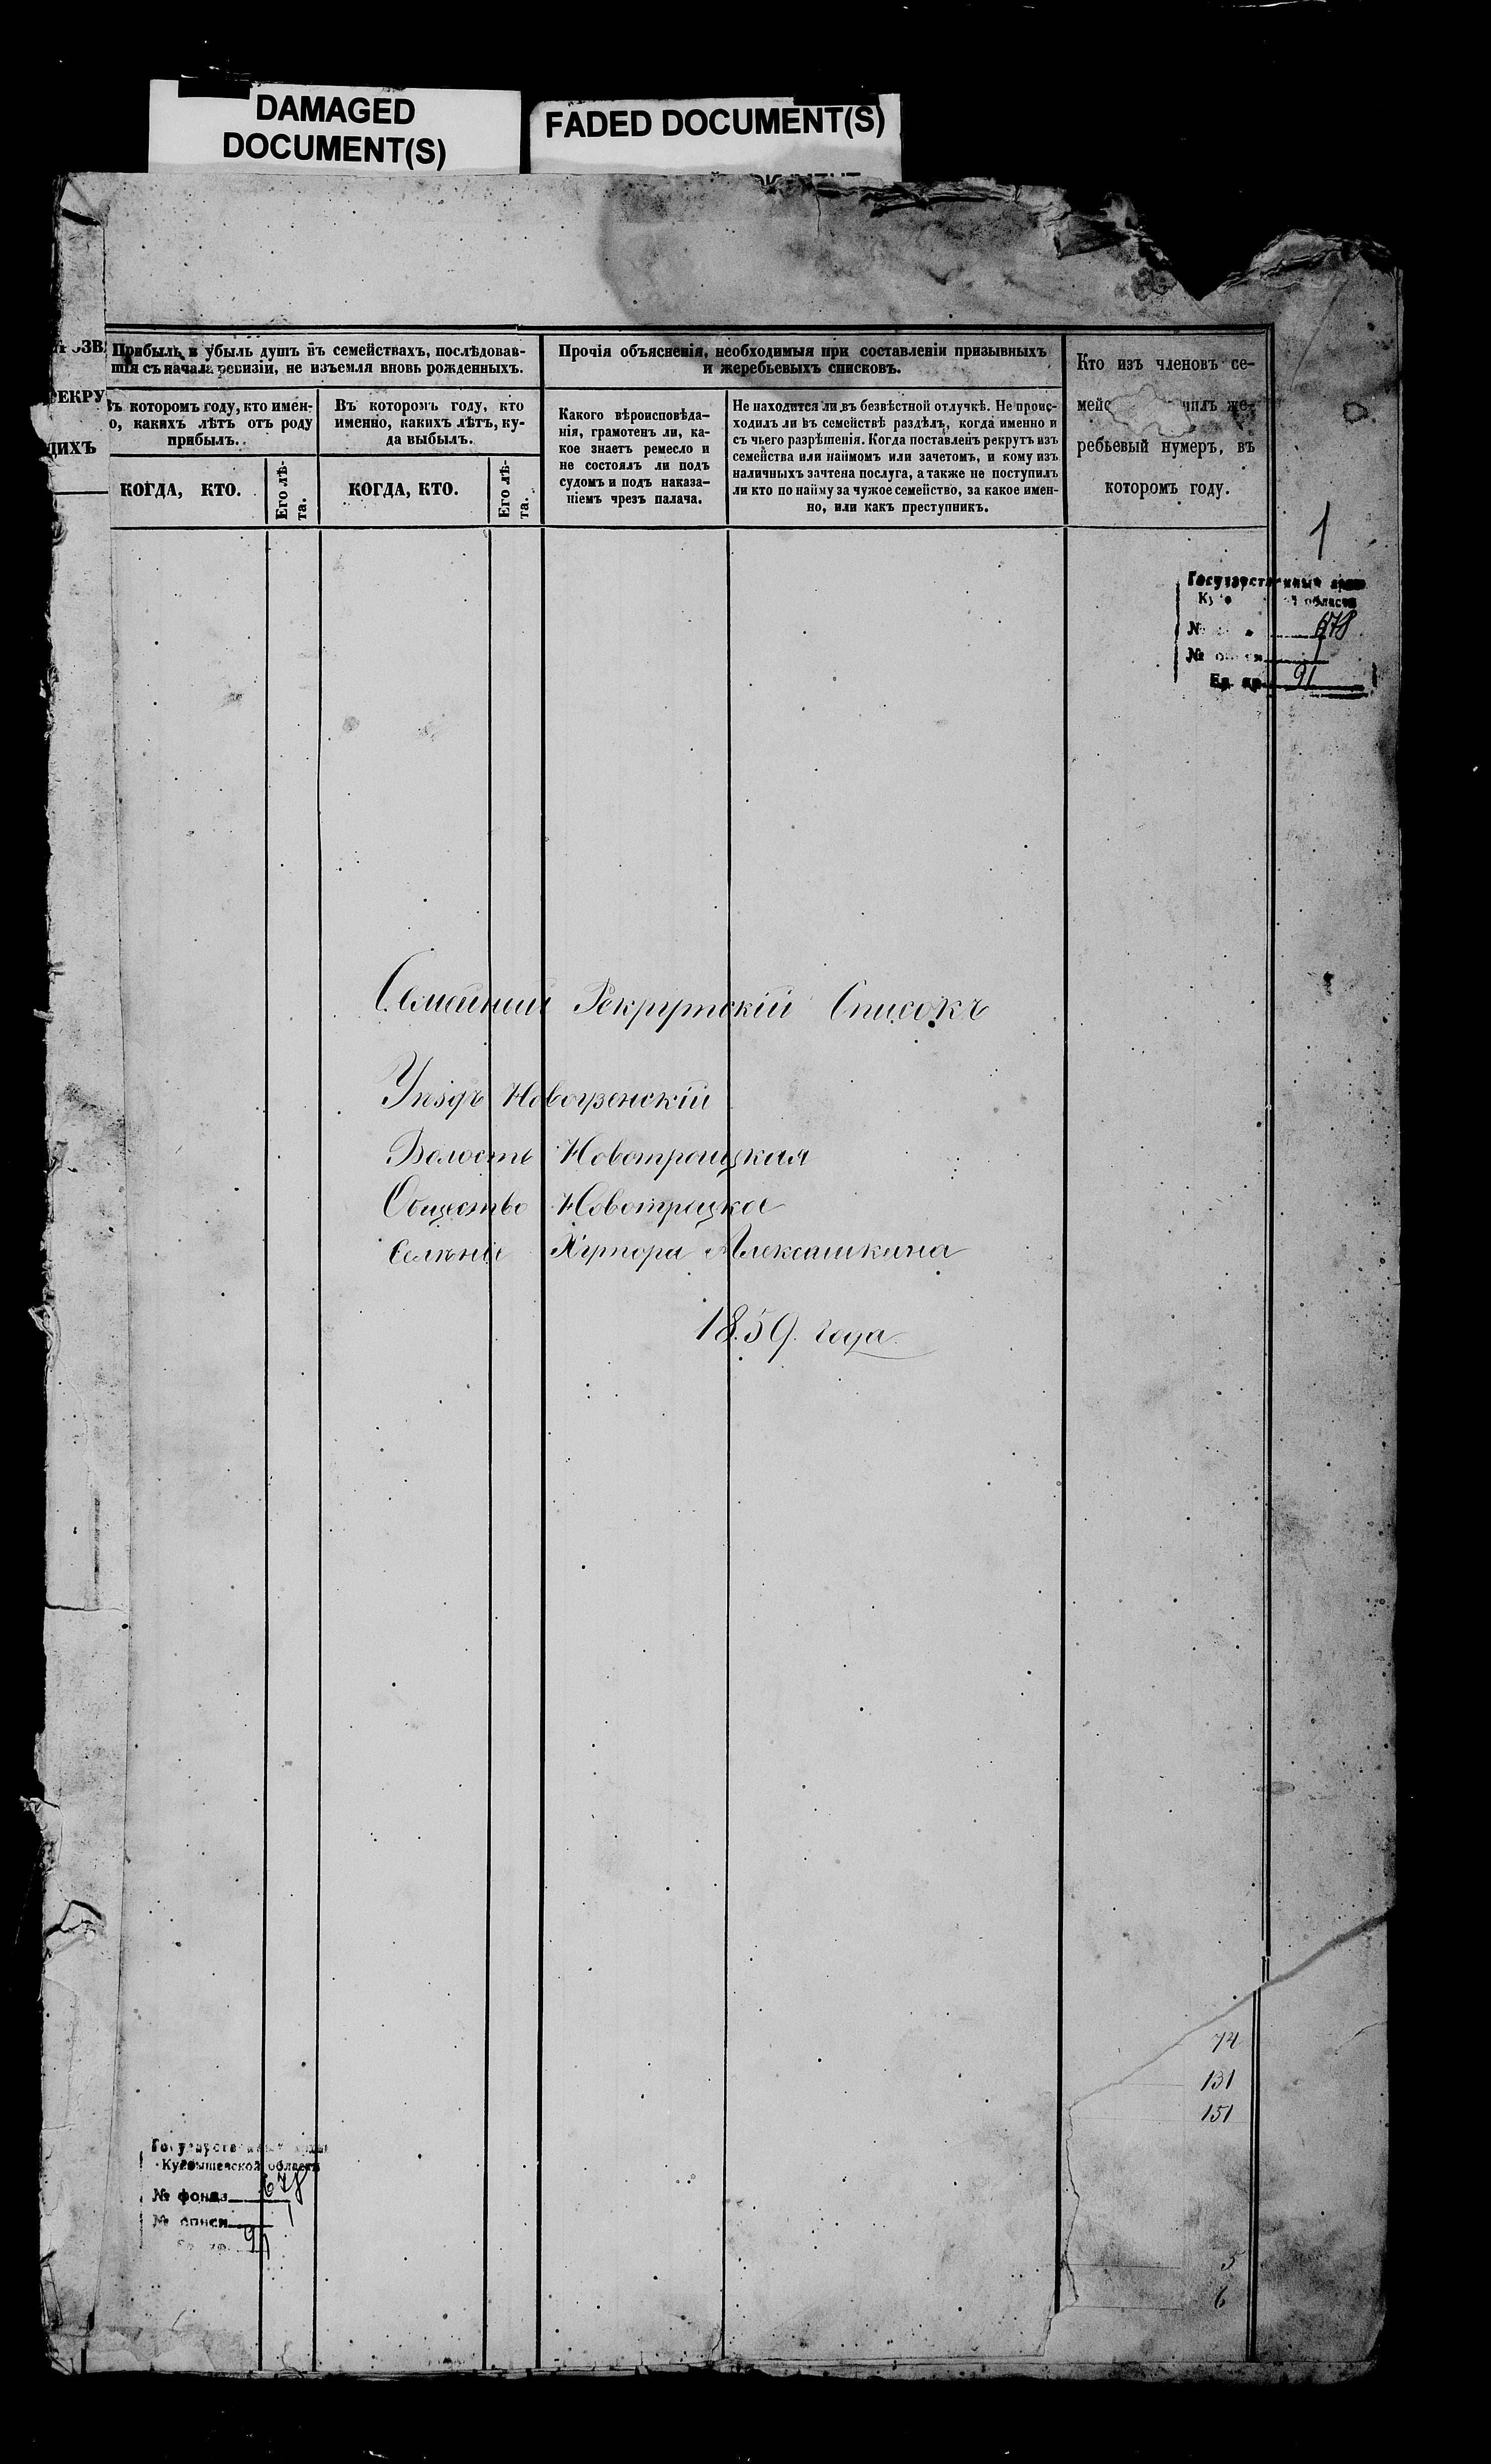 DAMAGED
DOCUMENT(S)
FADED DOCUMENT(S)
РЕКРУ
ДИХЪ
Прибыль и убыль душъ въ семействахъ, послѣдовав-
шія съ начала ревизіи, не изъемля вновь рожденныхъ.
Въ которомъ году, кто имен-
о, какихъ лѣтъ отъ роду
прибылъ.
КОГДА, КТО.
Его лѣ-
та.
Въ которомъ году, кто
именно, какихъ лѣтъ, ку-
да выбылъ.
КОГДА, КТО.
Его лѣ-
та.
Прочія объясненія, необходимыя при составленіи призывныхъ
и жеребьевыхъ списковъ.
Какого вѣроисповѣда-
нія, грамотенъ ли, ка-
кое знаетъ ремесло и
не состоялъ ли подъ
судомъ и подъ наказа-
ніемъ чрезъ палача.
Не находится ли въ безвѣстной отлучкѣ. Не проис-
ходилъ ли въ семействѣ раздѣлъ, когда именно и
съ чьего разрѣшенія. Когда поставленъ рекрутъ изъ
семейства или наймомъ или зачетомъ, и кому изъ
наличныхъ зачтена послуга, а также не поступилъ
ли кто по найму за чужое семейство, за какое имен-
но, или какъ преступникъ.
Кто изъ членовъ се-
мейс чилъ же-
ребьевый нумеръ, въ
которомъ году.
1
Государственный
области
678
1
Ед. хр. 91
Семейный Рекрутскій Списокъ
Уѣздъ Новоузенскій
Волость Новотроицкая
Общество Новотроцкое
Селѣніе Хутора Алексашкина
1859. года.
74
131
151
5
6
Государственный
Куйбышевской области
№ фонда 678
№ описи 1
91